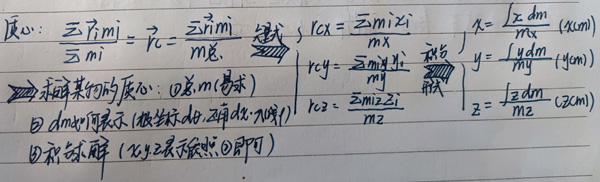 质心: Σr⃗imi / Σmi = r⃗c = Σr⃗imi / m总 rcx = Σmixi / mx x = ∫xdm / mx (xcm)
rcy = Σmiyi / my 积分 y = ∫ydm / my (ycm)
rcz = Σmizi / mz 形式 z = ∫zdm / mz (zcm)
求解某物的质心: ①总m(易求)
② dm如何表示(极坐标dθ,直角dx
③ 积分求解 (x,y,z表示依照②即可)